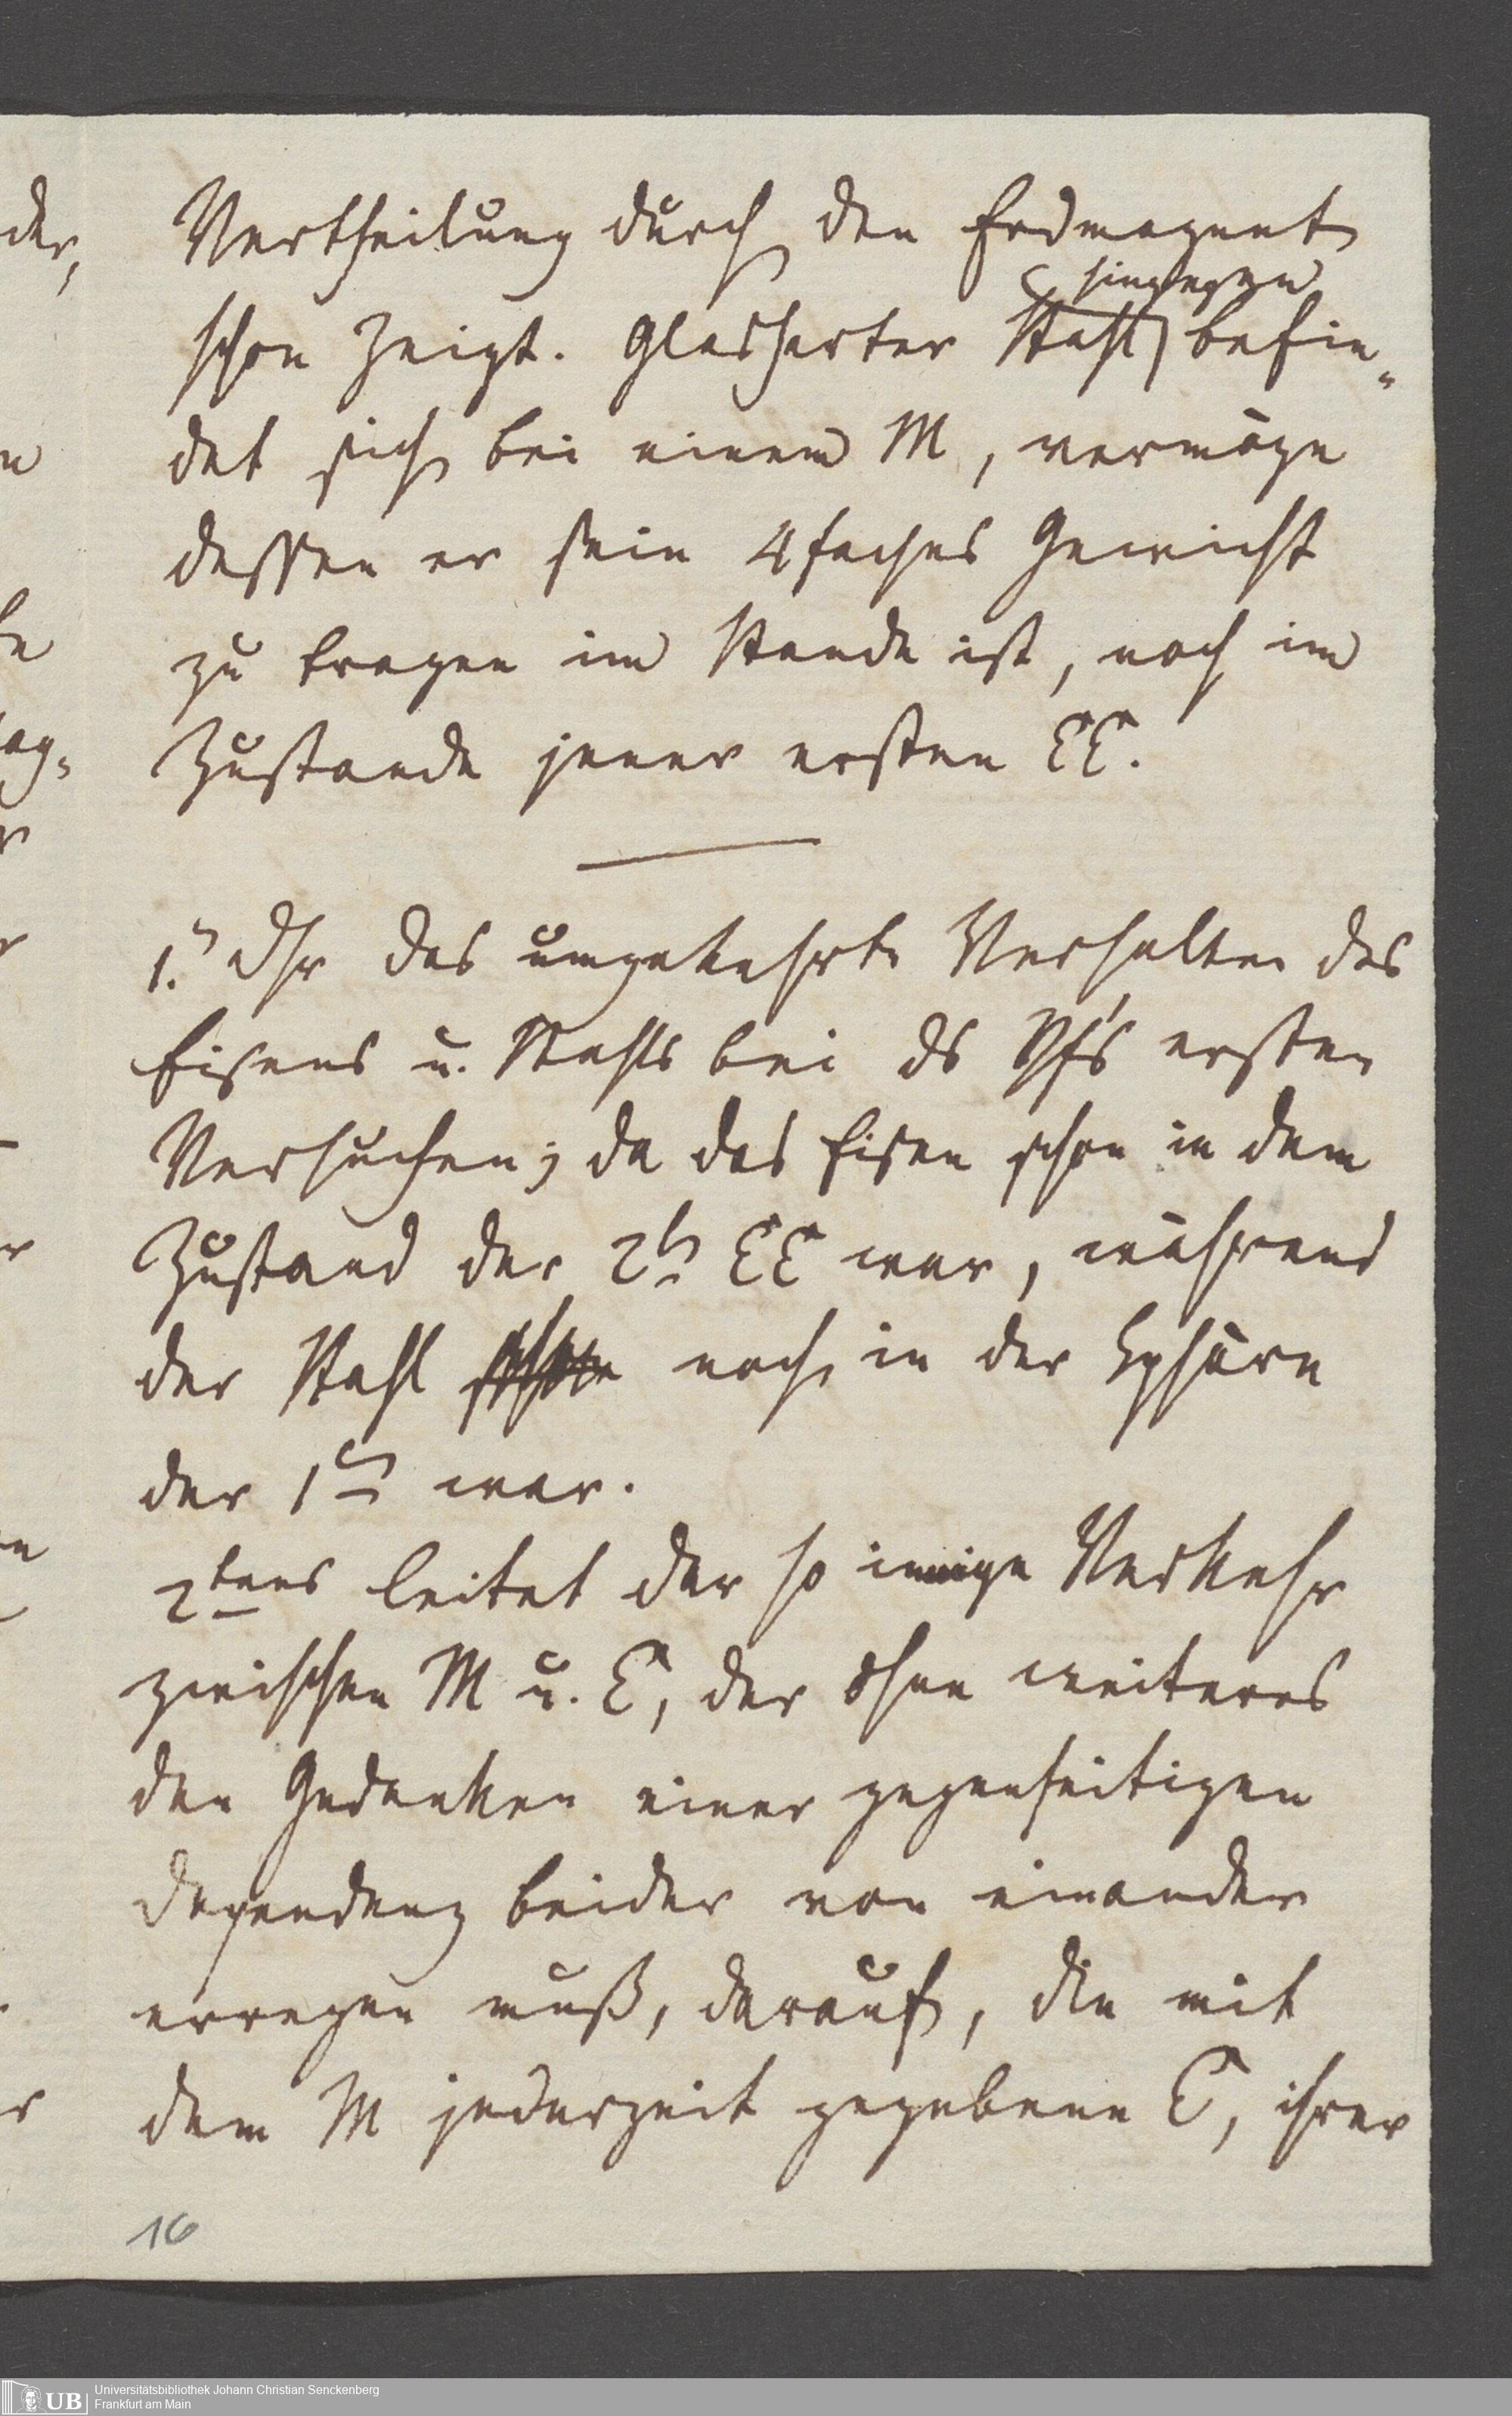 Vertheilung durch den Erdmagnet
hingegen
schon zeigt. Glasharter Stahl befin„
det sich bei einem M, vermöge
dessen er sein 4faches Gewicht
zu tragen im Stande ist, noch im
Zustande jener ersten EE.
1.) das umgekehrte Verhalten des
Eisens u. Stahls bei ds Vfs ersten
Versuchen; da das Eisen schon in dem
Zustand der 2t EE war, während
der Stahl schon noch in der Sphäre
der 1en war.
2tens leitet der so innige Verkehr
zwischen M u. E, der ohne weiteres
den Gedanken einer gegenseitigen
Dependenz beider von einander
erregen muß, darauf, die mit
dem M jederzeit gegebene E, ihrer
16
der,
UB
Universitätsbibliothek Johann Christian Senckenberg
Frankfurt am Main